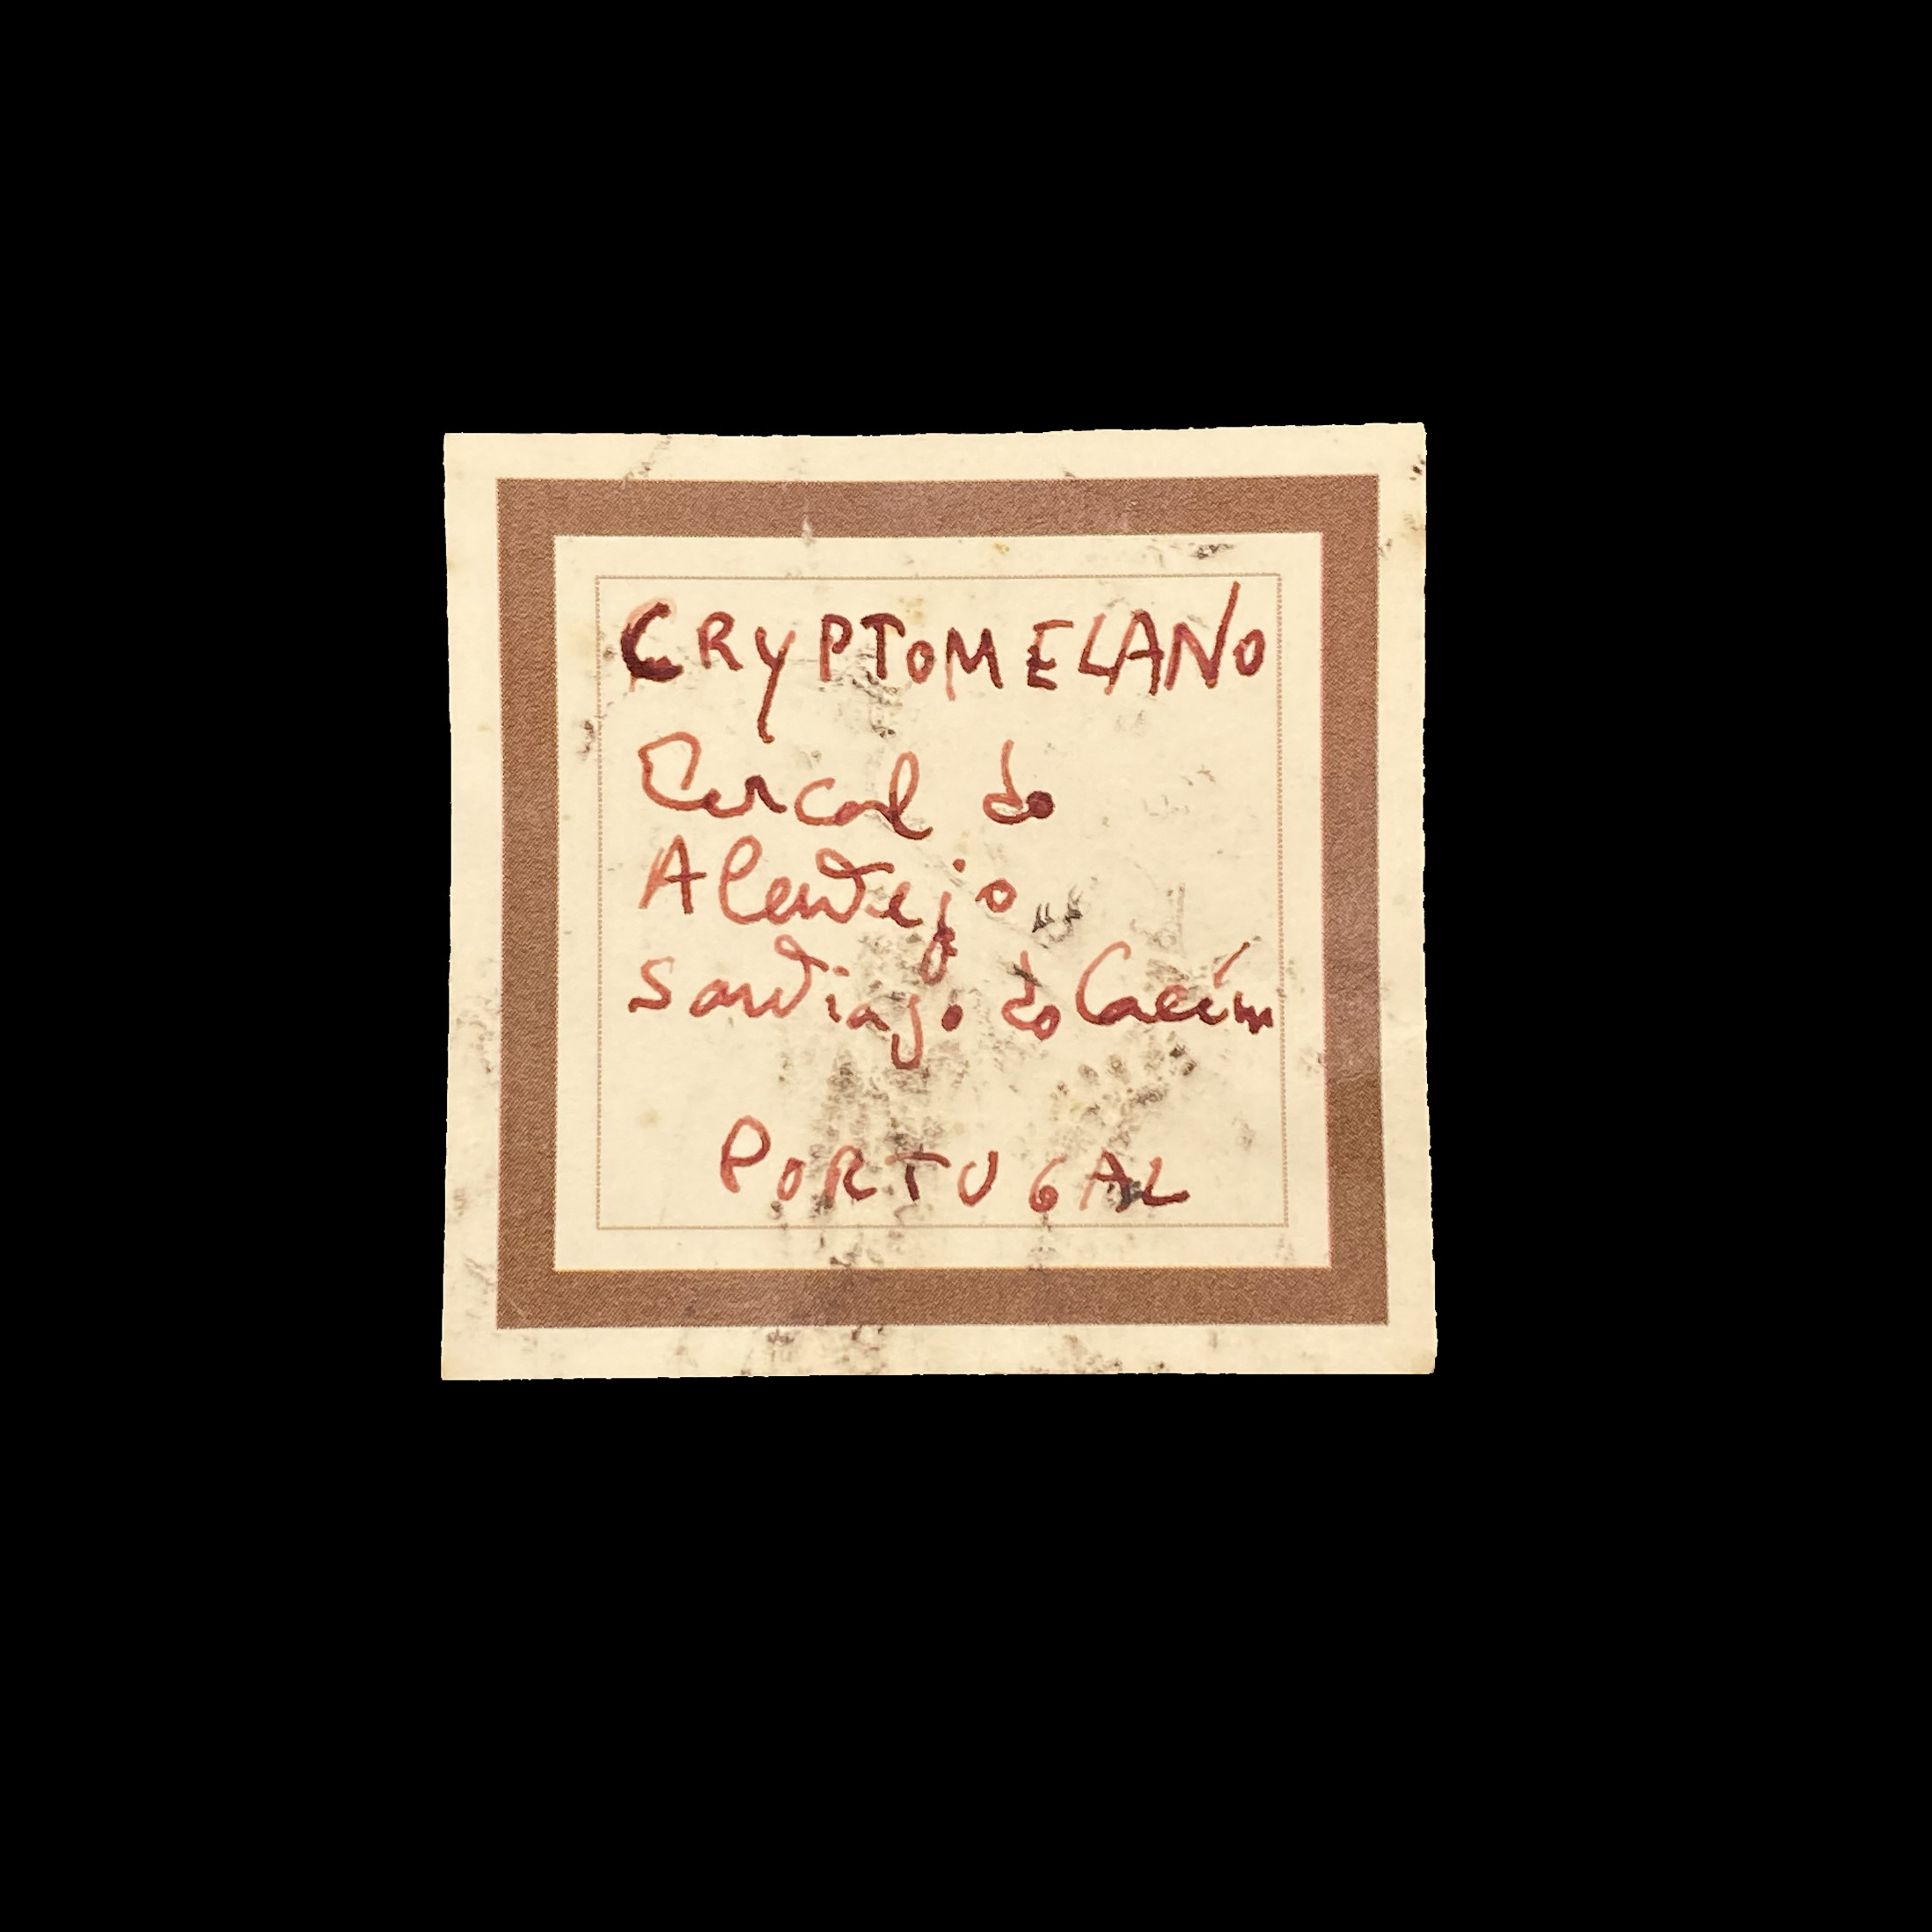 CRYPTOMELANO
Cercal do
Alentejo
Santiago do Cacém
PORTUGAL